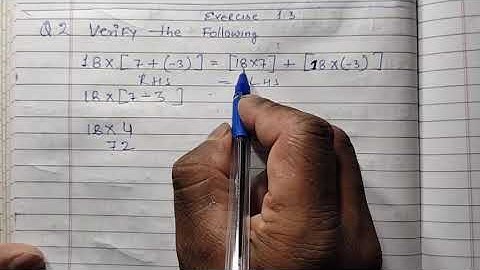 Exercise 1.3
Q2 Verify the Following
18×[7+(-3)] = [18×7] + [18×(-3)]
RHS = LHS
18×[7-3]
18×4
72